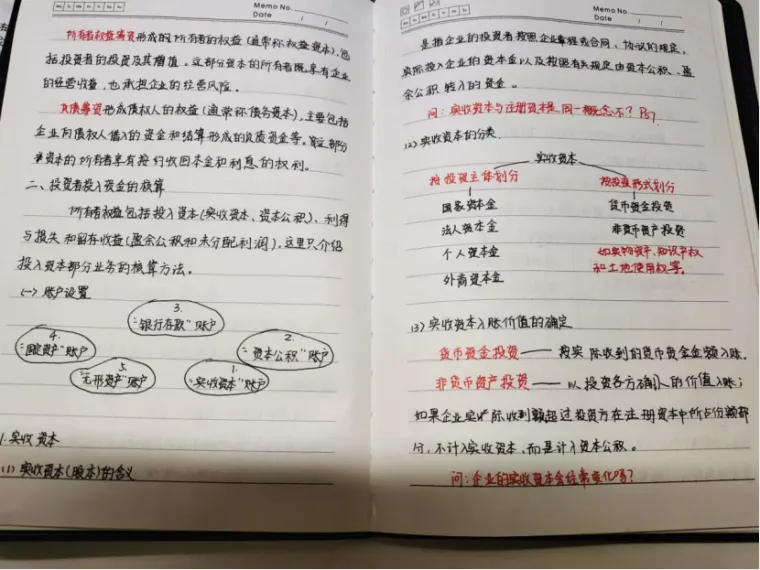 Memo No.
Date / /
所有者权益筹资形成的所有者的权益(通常称权益资本),包
括投资者的投资及其增值。这部分资本的所有者既享有企业
的经营收益,也承担企业的经营风险。
负债筹资形成债权人的权益(通常称债务资本),主要包括
企业向债权人借入的资金和结算形成的负债资金等。这部分
资本的所有者享有按约收回本金和利息的权利。
二、投资者投入资金的核算
所有者权益包括投入资本(实收资本、资本公积)、利得
与损失和留存收益(盈余公积和未分配利润),这里只介绍
投入资本部分业务的核算方法。
(一)账户设置
3.
"银行存款"账户
4.
"固定资产"账户
2.
"资本公积"账户
5.
"无形资产"账户
1.
"实收资本"账户
1.实收资本
(1)实收资本(股本)的含义
Memo No.
Date / /
是指企业的投资者按照企业章程或合同、协议的规定,
实际投入企业的资本金以及按照有关规定由资本公积、盈
余公积转入的资金。
问:实收资本与注册资本是同一概念不?P57.
(2)实收资本的分类
实收资本
按投资主体划分 按投资形式划分
国家资本金 货币资金投资
法人资本金 非货币资产投资
个人资本金 如实物资产、知识产权
外商资本金 和土地使用权等。
(3)实收资本入账价值的确定
货币资金投资——按实际收到的货币资金金额入账。
非货币资产投资——以投资各方确认的价值入账;
如果企业实际收到额超过投资方在注册资本中所占份额部
分,不计入实收资本,而是计入资本公积。
问:企业的实收资本会经常变化吗?